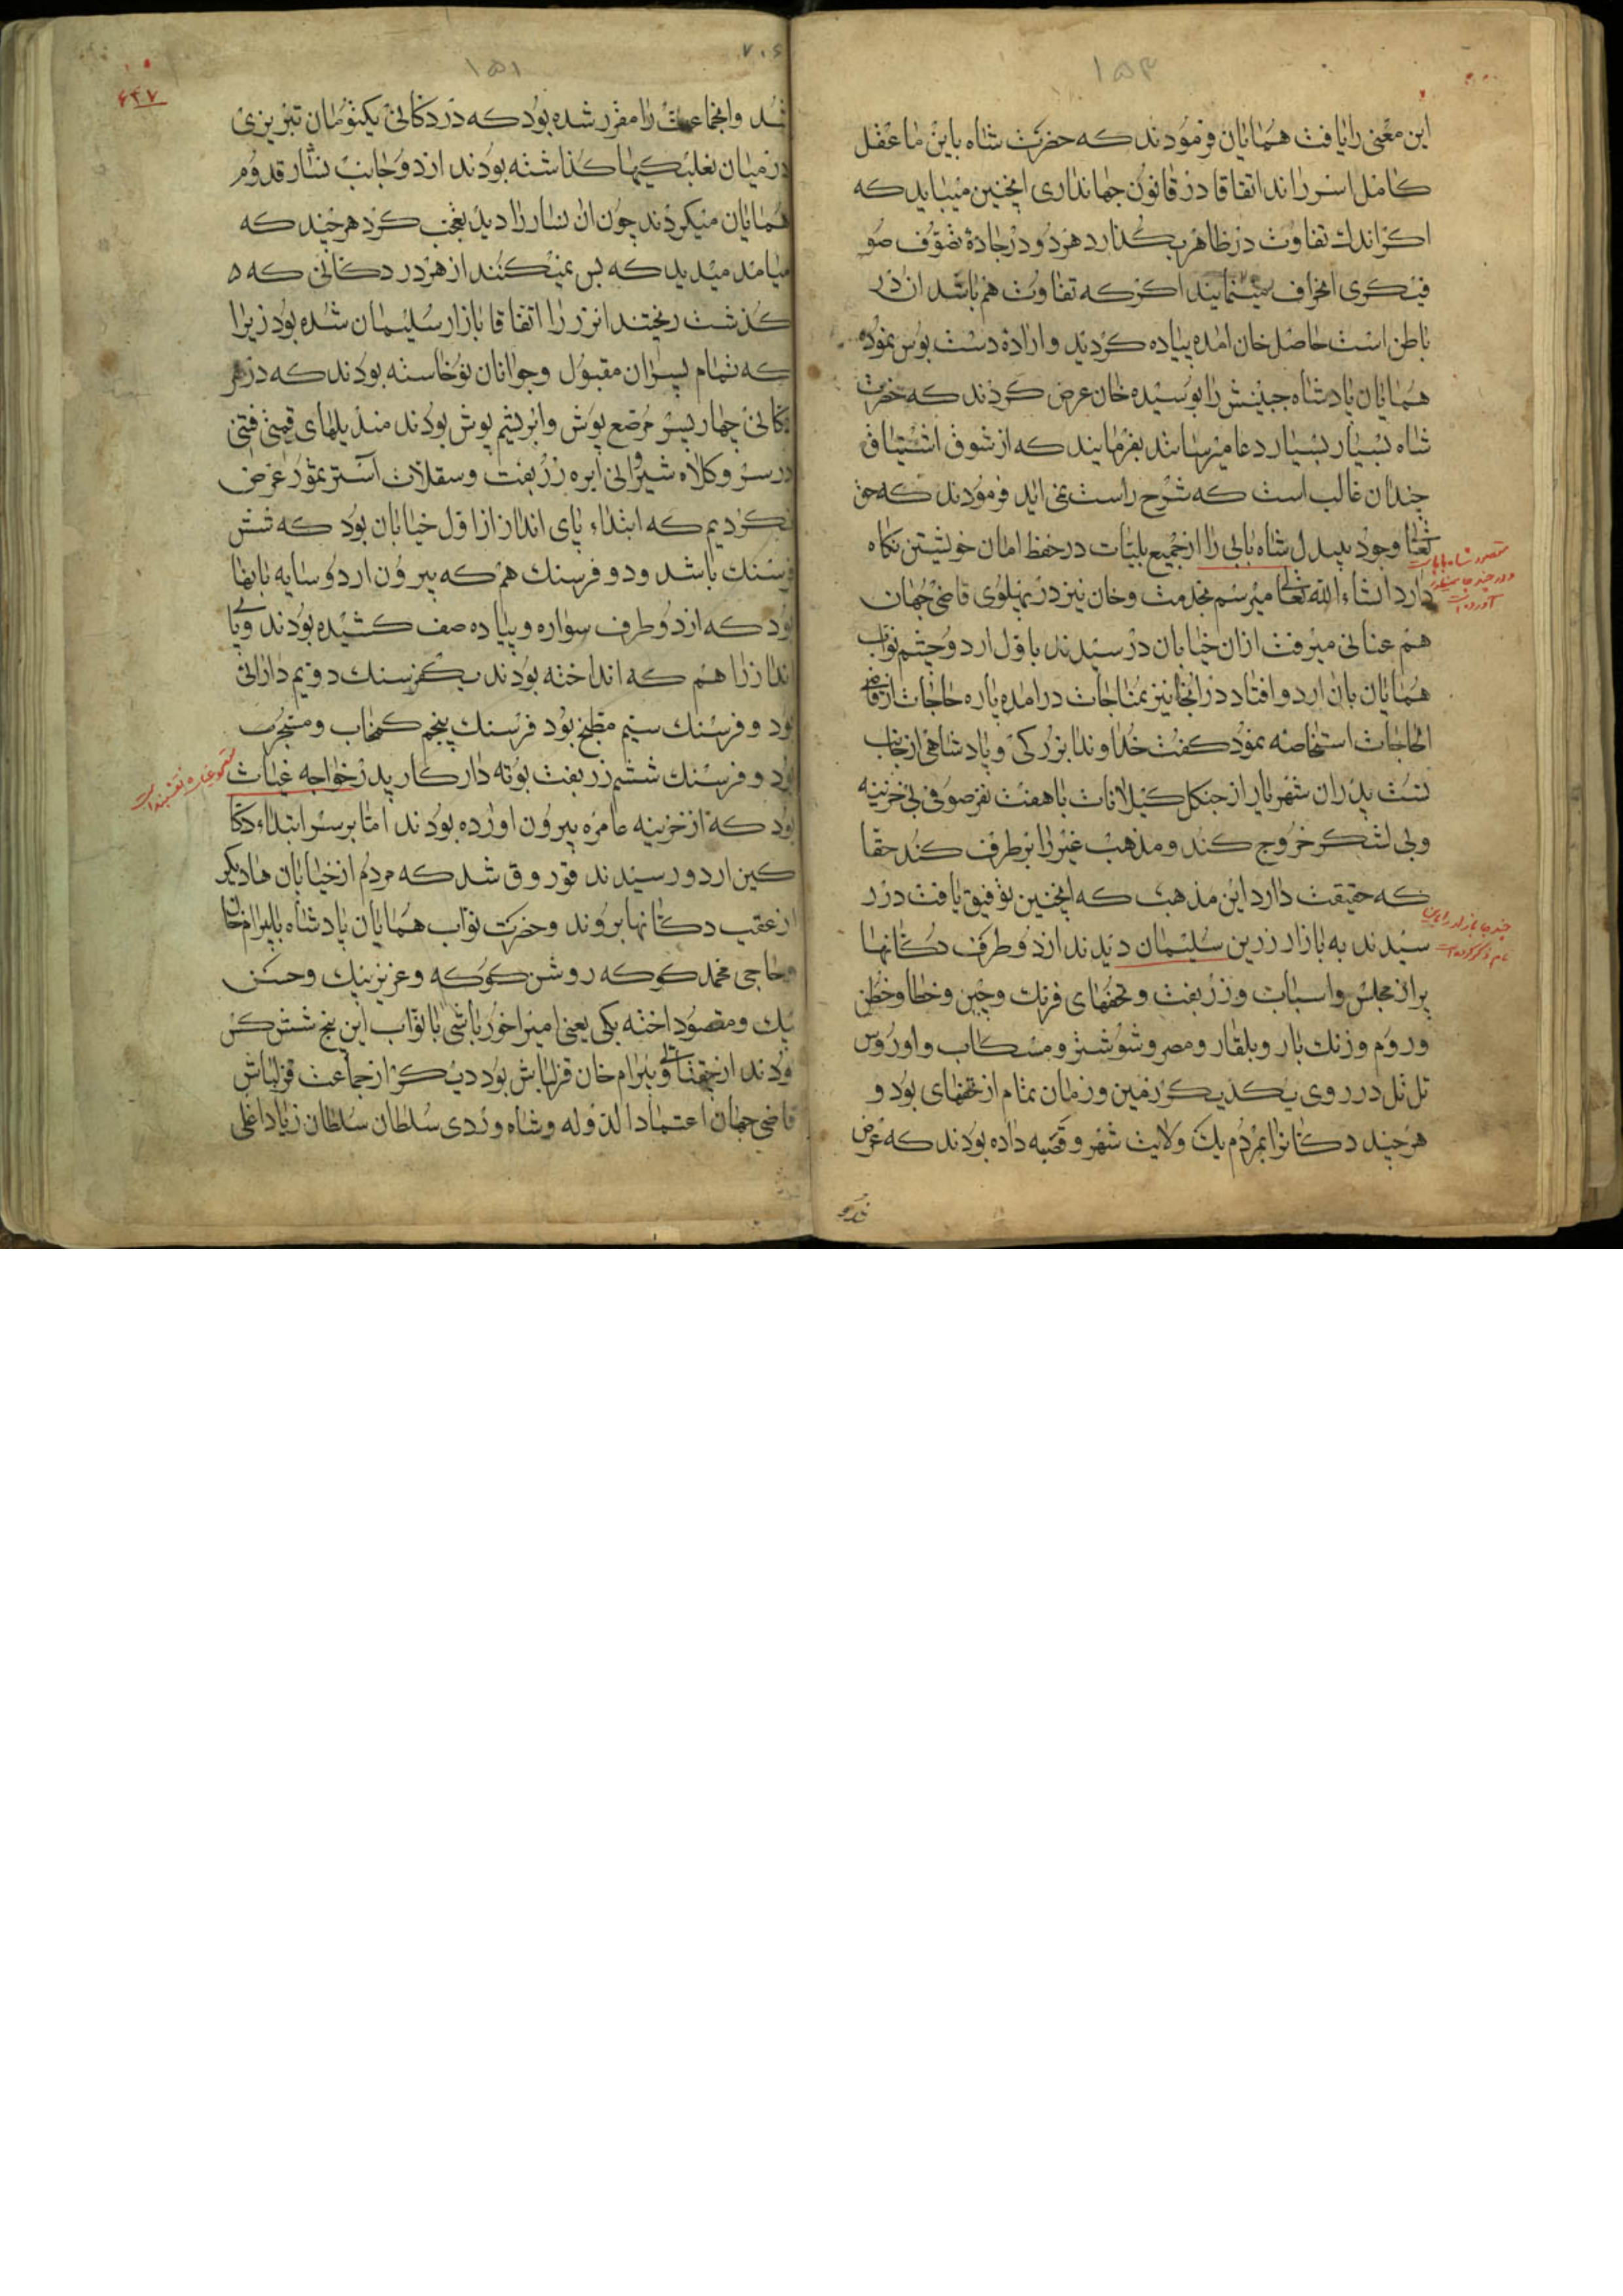 ۱۵۳
این معنی را یافت همایان فرمودند که حضرت شاه باین ما عقل
کامل اسرارند اتفاقا در قانون جهانداری اینچنین میباید که
اکر اندک تفاوت در ظاهر بکذارد هردو در جادهٔ تصوف صو
فیکری انحراف مینمایند اکر که تفاوت هم باشد ان در
باطن است حاصل خان امده پیاده کردید و ارادهٔ دست بوس نموده
همایان پادشاه جبینش را بوسیده خان عرض کردند که حضرت
شاه بسیار بسیار دعا میرسانند بفرمایند که از شوق اشتیاق
چندان غالب است که شرح راست نمی اید فرمودند که حق
تعالی وجود بیبدل شاه بابی را از جمیع بلیات در حفظ امان خویشتن نکاه
دارد انشاء الله تعالی میرسم بخدمت و خان نیز در پهلوی قاضی جهان
هم عنانی میرفت ازان خیابان در رسیدند باول اردو چشم نواب
همایان بان اردو افتاد در انجا نیز بمناجات در امده پاره حاجات از قاضی
الحاجات استخاصه نمود کفت خداوندا بزرکی و پادشاهی از جناب
تست پدران شهریار از جنکل کیلانات با هفت نفر صوفی بی خزینه
وبی لشکر خروج کند و مذهب غیر را بر طرف کند حقا
که حقیقت دارد این مذهب که اینچنین توفیق یافت در ر
سیدند به بازار زرین سلیمان دیدند از دو طرف دکانها
پر از مجلس و اسبات و زربفت و تحفهای فرنک و چین و خطا و ختن
و روم و زنک بار و بلقار و مصر و شوشتر و مسکاب و اوروس
تل تل در روی یکدیکر زمین و زمان تمام از تحفهای بود و
هر چند دکانرا بمردم یک ولایت شهر و قصبه داده بودند که عرض
مقصود شاه بابا است
۱۵۱
۷۰۶
۶۳۷
شد وانجماعت را مقرر شده بود که در دکانی یکتومان تبریزی
در میان نعلبکیها کذاشته بودند از دو جانب نثار قدوم
همایان میکردند چون ان نثار را دید تعجب کرد هر چند که
میامد میدید که بس نمیکنند از هر در دکانی که ه
کذشت ریختند انزر را اتفاقا بازار سلیمان شده بود زیرا
که تمام پسران مقبول و جوانان نوخاسته بودند که در هر
دکانی چهار پسر مرصع پوش وابریشم پوش بودند مندیلهای قیمتی
در سر و کلاه شیروانی ابره زربفت و سقلات استر سمور عرض
نکردیم که ابتداء پای انداز از اول خیابان بود که شش
فرسنک باشد و دو فرسنک هم که بیرون اردو سایه بانها
بود که از دو طرف سواره و پیاده صف کشیده بودند و پا
انداز را هم که انداخته بودند یکفرسنک دویم دارائی
بود و فرسنک سیم مطبخ بود فرسنک پنجم کمخاب و مشجر
بود و فرسنک ششم زربفت بوته دار کار پدر خواجه غیاث
بود که از خزینه عامره بیرون اورده بودند اما بر سر ابتداء دکا
کین اردو رسیدند قوروق شد که مردم از خیابان ها دیکر
از عقب دکانها بروند و حضرت نواب همایان پادشاه بابیرام خان
و حاجی محمد کوکه روشن کوکه و عزیز بیک و حسن
بیک و مقصود اخته بکی یعنی امیراخور باشی با نواب این پنج شش کس
بودند از چغتای و بیرام خان قزلباش بود دیکر از جماعت قزلباش
قاضی جهان اعتماد الدوله و شاه وردی سلطان سلطان زیاد اغلی